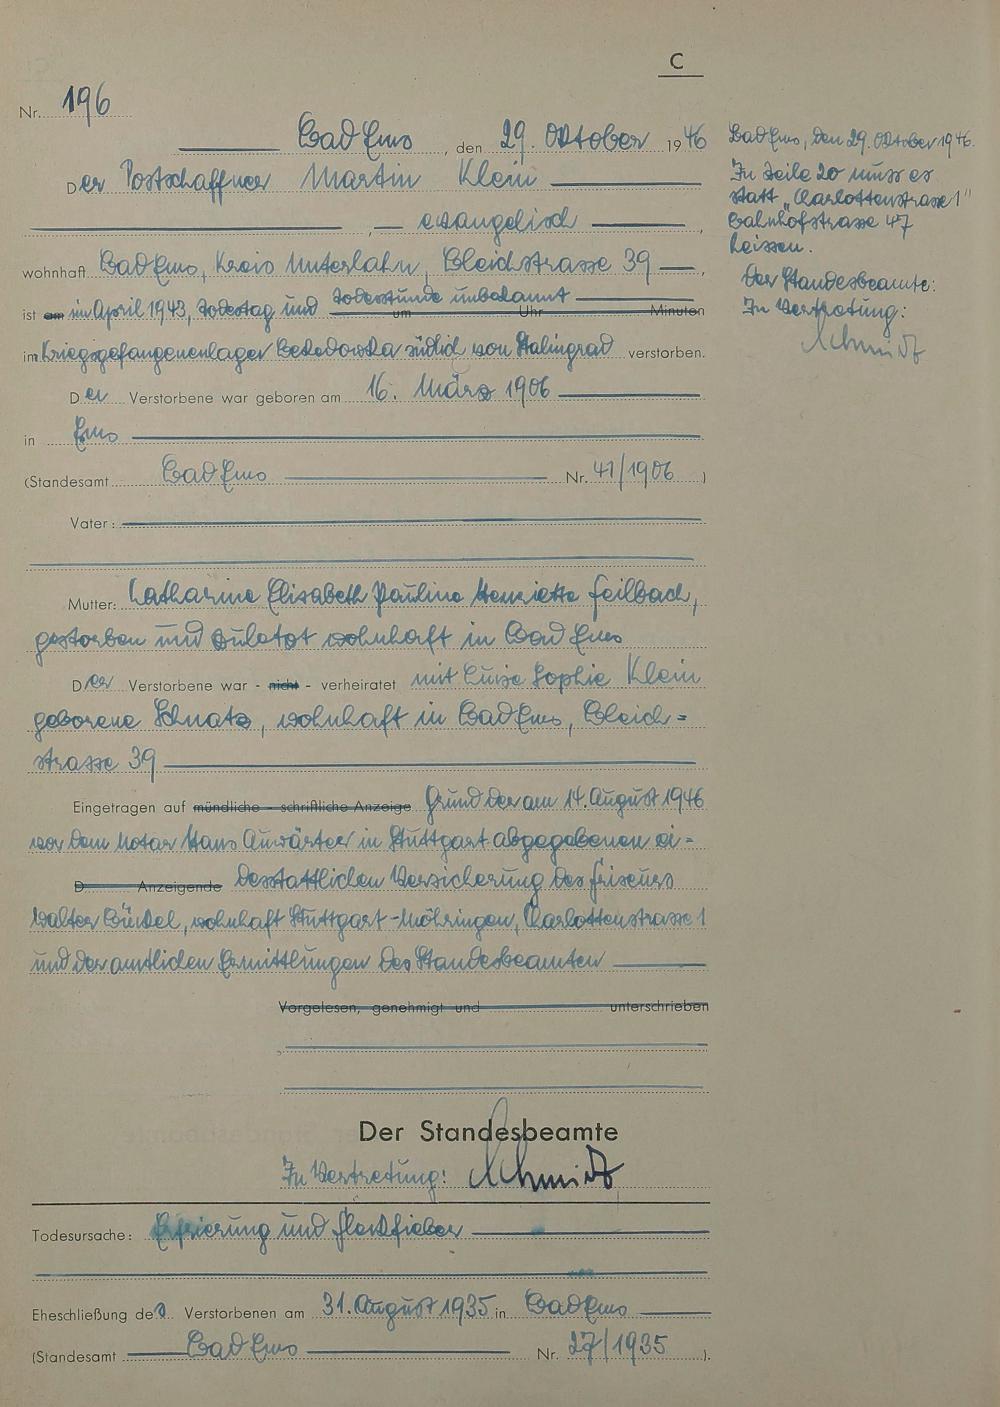 C
Nr. 196
Bad Ems, den 29. Oktober 1946
Der Postschaffner Martin Klein
, evangelisch ,
wohnhaft Bad Ems, Kreis Unterlahn, Bleichstrasse 39 ,
ist am im April 1943, Todestag und Todesstunde unbekannt um Uhr Minuten
im Kriegsgefangenenlager Beketowka südlich von Stalingrad verstorben.
Der Verstorbene war geboren am 16. März 1906
in Ems
(Standesamt Bad Ems Nr. 41/1906 )
Vater:
Mutter: Katharina Elisabeth Pauline Henriette Feilbach,
gestorben und zuletzt wohnhaft in Bad Ems
Der Verstorbene war - nicht - verheiratet mit Luise Sophie Klein
geborene Schnatz, wohnhaft in Bad Ems, Bleich=
strasse 39
Eingetragen auf mündliche - schriftliche Anzeige Grund der am 14. August 1946
vor dem Notar Hans Auwärter in Stuttgart abgegebenen ei=
D Anzeigende desstattlichen Versicherung des Friseurs
Walter , wohnhaft Stuttgart-Möhringen, Carlottenstrasse 1
und der amtlichen Ermittlungen des Standesbeamten
Vorgelesen, genehmigt und unterschrieben
Der Standesbeamte
In Vertretung: Schmidt
Todesursache: Erfrierung und Fleckfieber
Eheschließung des Verstorbenen am 31. August 1935 in Bad Ems
(Standesamt Bad Ems Nr. 27/1935 ).
Bad Ems, den 29. Oktober 1946.
In Zeile 20 muss es
statt „Carlottenstrasse 1"
Bahnhofstrasse 47
heissen.
Der Standesbeamte:
In Vertretung:
Schmidt